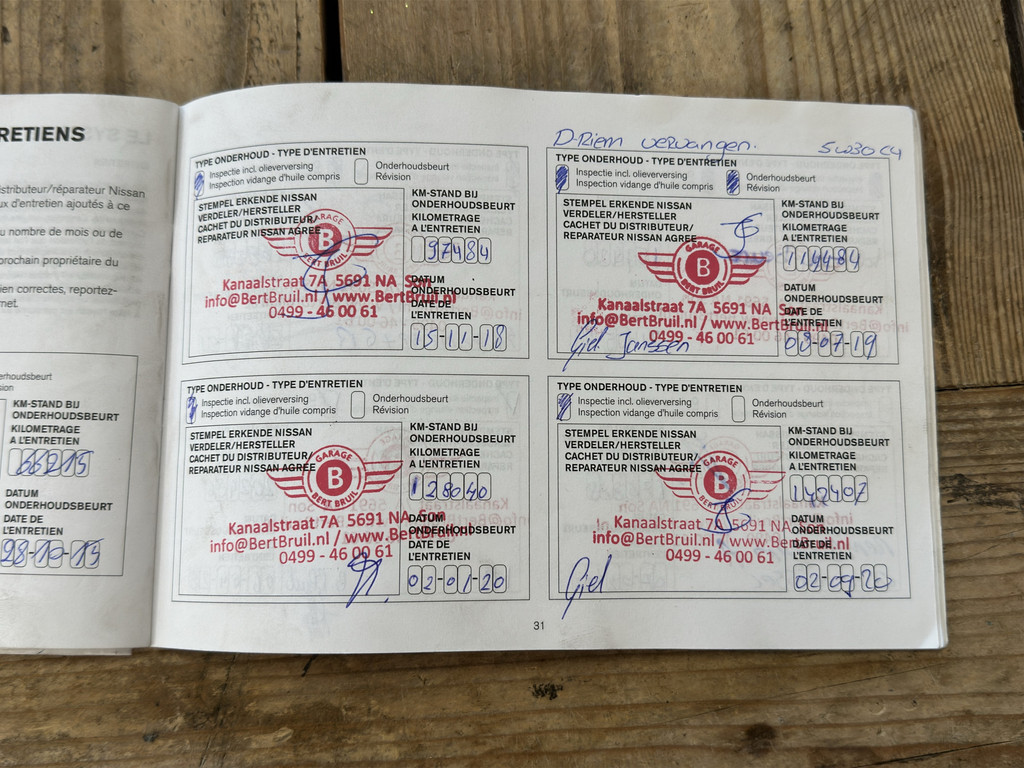 RETIENS
istributeur/réparateur Nissan
ux d'entretien ajoutés à ce
u nombre de mois ou de
prochain propriétaire du
ien correctes, reportez-
rnet.
erhoudsbeurt
sion
KM-STAND BIJ
ONDERHOUDSBEURT
KILOMETRAGE
A L'ENTRETIEN
66215
DATUM
ONDERHOUDSBEURT
DATE DE
L'ENTRETIEN
TYPE ONDERHOUD - TYPE D'ENTRETIEN
Inspectie incl. olieverversing
Inspection vidange d'huile compris
Onderhoudsbeurt
Révision
STEMPEL ERKENDE NISSAN
VERDELER/HERSTELLER
CACHET DU DISTRIBUTEUR/
REPARATEUR NISSAN AGREE
GARAGE
B
BERT BRUIL
Kanaalstraat 7A 5691 NA Son
info@BertBruil.nl / www.BertBruil.nl
0499 - 46 00 61
KM-STAND BIJ
ONDERHOUDSBEURT
KILOMETRAGE
A L'ENTRETIEN
97484
DATUM
ONDERHOUDSBEURT
DATE DE
L'ENTRETIEN
15-11-18
D-Riem vervangen.
5w30 C4
TYPE ONDERHOUD - TYPE D'ENTRETIEN
Inspectie incl. olieverversing
Inspection vidange d'huile compris
Onderhoudsbeurt
Révision
STEMPEL ERKENDE NISSAN
VERDELER/HERSTELLER
CACHET DU DISTRIBUTEUR/
REPARATEUR NISSAN AGREE
GARAGE
B
BERT BRUIL
Kanaalstraat 7A 5691 NA Son
info@BertBruil.nl / www.BertBruil.nl
0499 - 46 00 61
Giel Janssen
KM-STAND BIJ
ONDERHOUDSBEURT
KILOMETRAGE
A L'ENTRETIEN
114484
DATUM
ONDERHOUDSBEURT
DATE DE
L'ENTRETIEN
08-07-19
TYPE ONDERHOUD - TYPE D'ENTRETIEN
Inspectie incl. olieverversing
Inspection vidange d'huile compris
Onderhoudsbeurt
Révision
STEMPEL ERKENDE NISSAN
VERDELER/HERSTELLER
CACHET DU DISTRIBUTEUR/
REPARATEUR NISSAN AGREE
GARAGE
B
BERT BRUIL
Kanaalstraat 7A 5691 NA Son
info@BertBruil.nl / www.BertBruil.nl
0499 - 46 00 61
KM-STAND BIJ
ONDERHOUDSBEURT
KILOMETRAGE
A L'ENTRETIEN
128040
DATUM
ONDERHOUDSBEURT
DATE DE
L'ENTRETIEN
02-01-20
TYPE ONDERHOUD - TYPE D'ENTRETIEN
Inspectie incl. olieverversing
Inspection vidange d'huile compris
Onderhoudsbeurt
Révision
STEMPEL ERKENDE NISSAN
VERDELER/HERSTELLER
CACHET DU DISTRIBUTEUR/
REPARATEUR NISSAN AGREE
GARAGE
B
BERT BRUIL
Kanaalstraat 7A 5691 NA Son
info@BertBruil.nl / www.BertBruil.nl
0499 - 46 00 61
Giel
KM-STAND BIJ
ONDERHOUDSBEURT
KILOMETRAGE
A L'ENTRETIEN
142407
DATUM
ONDERHOUDSBEURT
DATE DE
L'ENTRETIEN
02-09-20
31